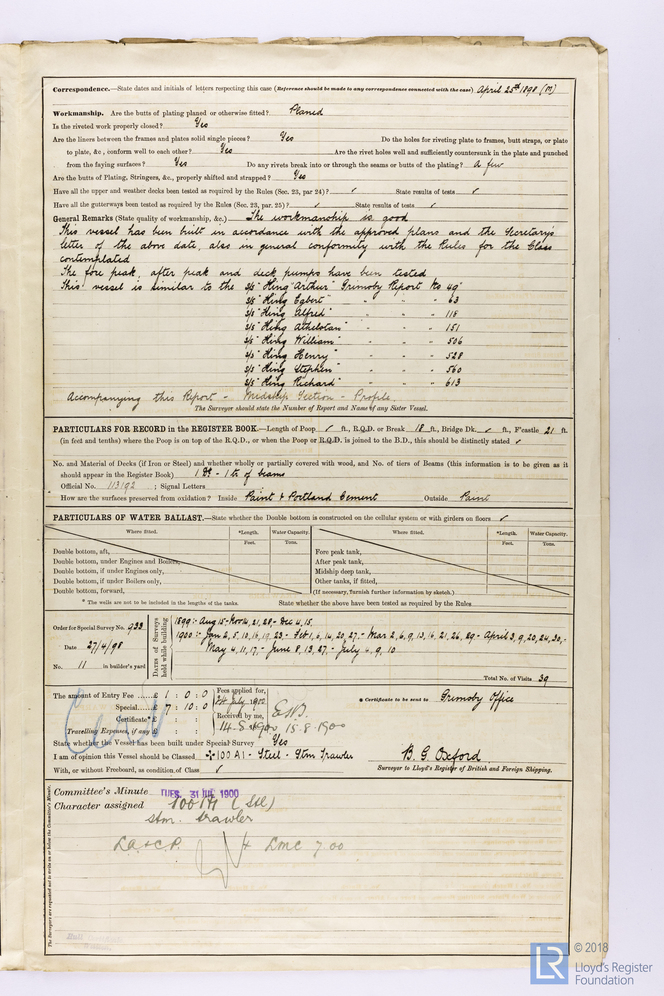 Correspondence.—State dates and initials of letters respecting this case (Reference should be made to any correspondence connected with the case) April 25th 1898 (M)
Workmanship. Are the butts of plating planed or otherwise fitted? Planed
Is the riveted work properly closed? Yes
Are the liners between the frames and plates solid single pieces? Yes Do the holes for riveting plate to frames, butt straps, or plate
to plate, &c., conform well to each other? Yes Are the rivet holes well and sufficiently countersunk in the plate and punched
from the faying surfaces? Yes Do any rivets break into or through the seams or butts of the plating? A few
Are the butts of Plating, Stringers, &c., properly shifted and strapped? Yes
Have all the upper and weather decks been tested as required by the Rules (Sec. 23, par 24)? ✓ State results of tests ✓
Have all the gutterways been tested as required by the Rules (Sec. 23, par. 25)? ✓ State results of tests ✓
General Remarks (State quality of workmanship, &c.) The workmanship is good
This vessel has been built in accordance with the approved plans and the Secretary's
letter of the above date, also in general conformity with the Rules for the Class
contemplated
The fore peak, after peak and deck pumps have been tested
This vessel is similar to the S/S "King Arthur" Grimsby Report No 49
S/S "King Egbert" " " " 63
S/S "King Alfred" " " " 118
S/S "King Athelstan" " " " 151
S/S "King William" " " " 506
S/S "King Henry" " " " 528
S/S "King Stephen" " " " 560
S/S "King Richard" " " " 613
Accompanying this Report - Midship Section - Profile.
The Surveyor should state the Number of Report and Name of any Sister Vessel.
PARTICULARS FOR RECORD in the REGISTER BOOK.—Length of Poop ✓ ft., R.Q.D. or Break 18 ft., Bridge Dk. ✓ ft., F'castle 21 ft.
(in feet and tenths) where the Poop is on top of the R.Q.D., or when the Poop or R.Q.D. is joined to the B.D., this should be distinctly stated ✓
No. and Material of Decks (if Iron or Steel) and whether wholly or partially covered with wood, and No. of tiers of Beams (this information is to be given as it
should appear in the Register Book) 1 Dk - 1 tr of beams
Official No. 113192 ; Signal Letters
How are the surfaces preserved from oxidation? Inside Paint & Portland Cement Outside Paint
PARTICULARS OF WATER BALLAST.—State whether the Double bottom is constructed on the cellular system or with girders on floors ✓
Where fitted. *Length. Water Capacity. Where fitted. *Length. Water Capacity.
Feet. Tons. Feet. Tons.
Double bottom, aft, Fore peak tank,
Double bottom, under Engines and Boilers, After peak tank,
Double bottom, if under Engines only, Midship deep tank,
Double bottom, if under Boilers only, Other tanks, if fitted,
Double bottom, forward, (If necessary, furnish further information by sketch.)
* The wells are not to be included in the lengths of the tanks. State whether the above have been tested as required by the Rules
Order for Special Survey No. 933
Date 27/4/98
No. 11 in builder's yard
Dates of Surveys held while building
1899:- Aug 15 - Nov 14, 21, 28 - Dec 4, 15,
1900:- Jan 2, 5, 10, 16, 19, 23 - Feb 1, 6, 14, 20, 27 - Mar 2, 6, 9, 13, 16, 21, 26, 29 - April 3, 9, 20, 24, 30,-
May 4, 11, 17, - June 8, 13, 27, - July 4, 9, 10
Total No. of Visits 39
The amount of Entry Fee £ 1 : 0 : 0 Fees applied for,
Special £ 7 : 10 : 0 24 July 1900
Certificate* £ : : Received by me,
Travelling Expenses, if any £ : : 14-8-1900 15-8-1900
* Certificate to be sent to Grimsby Office
State whether the Vessel has been built under Special Survey Yes
I am of opinion this Vessel should be Classed ✠100A1 - Steel - Stm Trawler
With, or without Freeboard, as condition of Class ✓
B. G. Oxford
Surveyor to Lloyd's Register of British and Foreign Shipping.
Committee's Minute TUES. 31 JUL 1900
Character assigned 100A1 (Stl)
Stm. Trawler
LA&CP. + LMC 7.00
The Surveyors are requested not to write on or below the Committee's Minute.
© 2018
Lloyd's Register
Foundation
LR